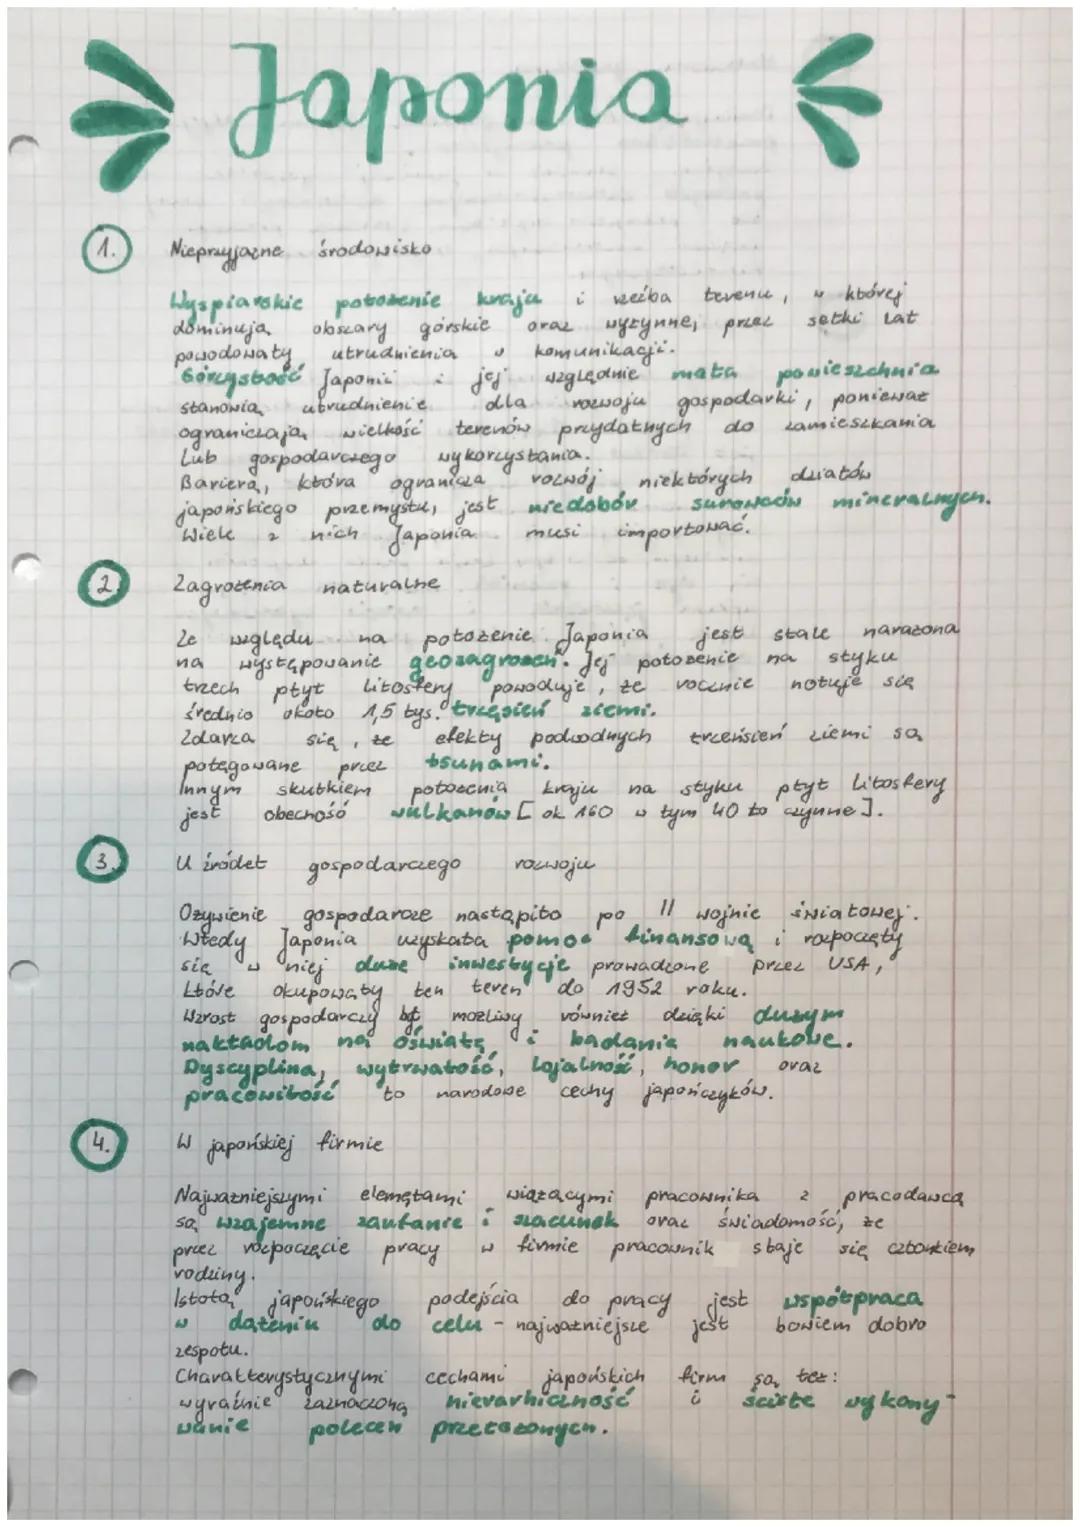 Japonia
1. Nieprzyjazne środowisko
Wyspiarskie położenie kraju i rzeźba terenu, w której
dominują obszary górskie oraz wyżynne, przez setki lat
powodowały utrudnienia w komunikacji.
Górzystość Japonii i jej względnie mała powierzchnia
stanowią utrudnienie dla rozwoju gospodarki, ponieważ
ograniczają wielkość terenów przydatnych do zamieszkania
lub gospodarczego wykorzystania.
Barierą, która ogranicza rozwój niektórych działów
japońskiego przemysłu, jest niedobór surowców mineralnych.
Wiele z nich Japonia musi importować.
2. Zagrożenia naturalne
Ze względu na położenie Japonia jest stale narażona
na występowanie geozagrożeń. Jej położenie na styku
trzech płyt litosfery powoduje, że rocznie notuje się
średnio około 1,5 tys. trzęsień ziemi.
Zdarza się, że efekty podwodnych trzensień ziemi są
potęgowane przez tsunami.
Innym skutkiem położenia kraju na styku płyt litosfery
jest obecność wulkanów [ ok 160 w tym 40 to czynne ].
3. U źródeł gospodarczego rozwoju
Ożywienie gospodarcze nastąpiło po II wojnie światowej.
Wtedy Japonia uzyskała pomoc finansową i rozpoczęły
się w niej duże inwestycje prowadzone przez USA,
które okupowały ten teren do 1952 roku.
Wzrost gospodarczy był możliwy również dzięki dużym
nakładom na oświatę i badania naukowe.
Dyscyplina, wytrwałość, lojalność, honor oraz
pracowitość to narodowe cechy japończyków.
4. W japońskiej firmie
Najważniejszymi elemętami wiążącymi pracownika z pracodawcą
są wzajemne zaufanie i szacunek oraz świadomość, że
przez rozpoczęcie pracy w firmie pracownik staje się członkiem
rodziny.
Istotą japońskiego podejścia do pracy jest współpraca
w dążeniu do celu - najważniejsze jest bowiem dobro
zespołu.
Charakterystycznymi cechami japońskich firm są też:
wyraźnie zaznaczoną hierarhiczność i ścisłe wykony-
wanie poleceń przełożonych.